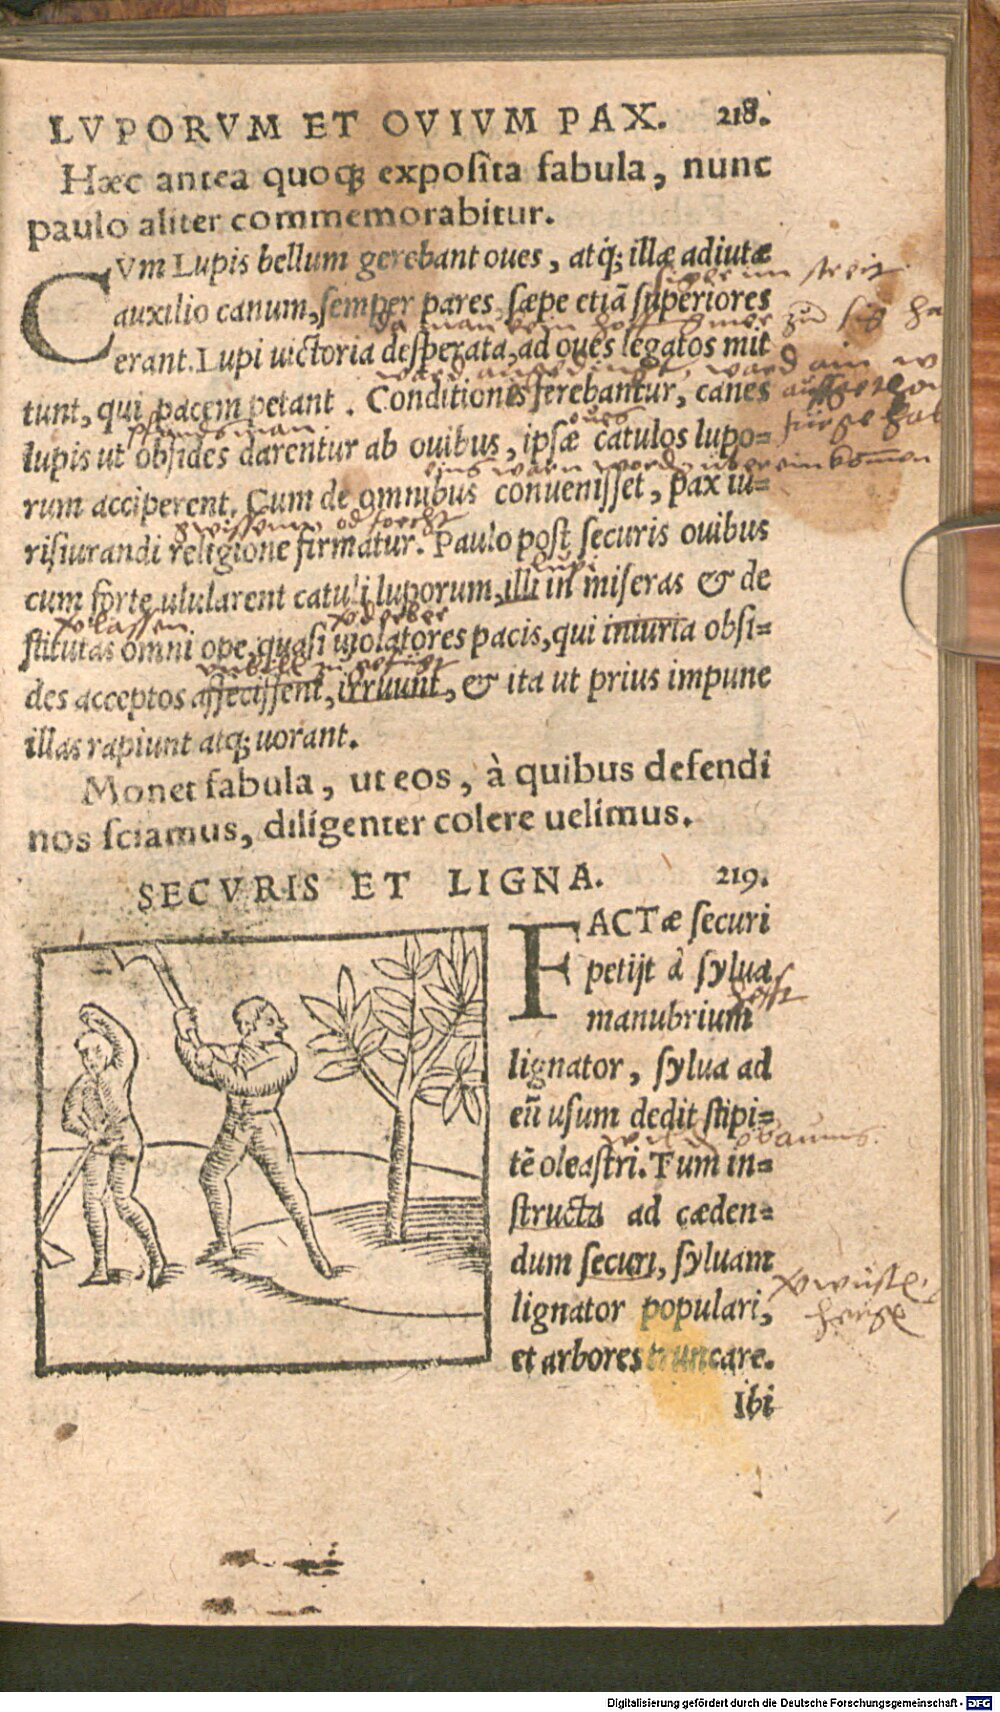 LVPORVM ET OVIVM PAX. 218.
Hæc antea quoqȝ exposita fabula, nunc
paulo aliter commemorabitur.
CVm Lupis bellum gerebant oues, atqȝ illæ adiutæ
auxilio canum, semper pares, sæpe etiã superiores
erant. Lupi uictoria desperata, ad oues legatos mit
tunt, qui pacem petant. Conditiones ferebantur, canes
oues
lupis ut obsides darentur ab ouibus, ipsæ catulos lupo=
rum acciperent. Cum de omnibus conuenisset, pax iu=
risiurandi religione firmatur. Paulo post securis ouibus
lupi
cum forte ulularent catuli luporum, illi in miseras & de
stitutas omni ope, quasi uiolatores pacis, qui iniuria obsi=
des acceptos affecissent, irruunt, & ita ut prius impune
illas rapiunt atqȝ uorant.
Monet fabula, ut eos, à quibus defendi
nos sciamus, diligenter colere uelimus.
SECVRIS ET LIGNA. 219.
FACTæ securi
petijt à sylua
manubrium
lignator, sylua ad
eũ usum dedit stipi=
tẽ oleastri. Tum in=
structa ad cæden=
dum securi, syluam
lignator populari,
et arbores truncare.
Ibi
Digitalisierung gefördert durch die Deutsche Forschungsgemeinschaft - DFG